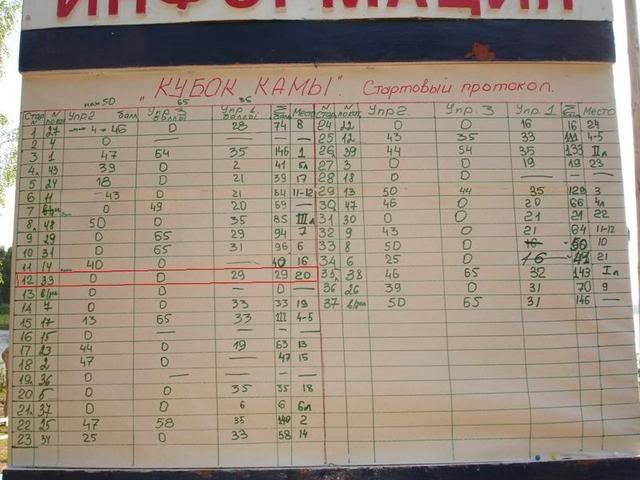 ИНФОРМАЦИЯ
"КУБОК КАМЫ". Стартовый протокол.
max 50 65 35
Упр2 бал Упр. 3 баллы Упр. 1 баллы Σ Место
1 27 46 0 28 74 8
2 4 0 — — —
3 1 47 64 35 146 1
4. 43 39 0 2 41
5 24 18 0 21 39 17
6 11 43 0 21 64 11-12
7 0 49 20 69 —
8. 48 50 0 35 85 III
9 29 0 65 29 94 7
10 31 0 65 31 96 6
11 14 40 0 — 40 16
12 33 0 0 29 29 20
13 в/к 0 — — 0 —
14 7 0 0 33 33 19
15 17 13 65 33 111 4-5
16 15 0 — — — —
17 23 44 0 19 63 13
18 2 47 0 — 47 15
19. 36 0 — — — —
20 5 0 0 35 35 18
21. 37 0 0 6 6
22 25 47 58 35 140 2
23 34 25 0 33 58 14
Упр2. Упр. 3 Упр 1 Σ Место
24 22 0 0 16 16 24
25 12 43 35 33 111 4-5
26. 39 44 54 35 133 II
27 3 0 0 19 19 23
28 18 0 0 — — —
29 13 50 44 35 129 3
30 47 46 0 20 66
31 30 0 0 21 21 22
32 9 43 0 21 64 11-12
33 8 50 0 50 10
34 6 25 0 21
35. 38 46 65 32 143 I
36 26 39 0 31 70 9
37 в/к 50 65 31 146 —